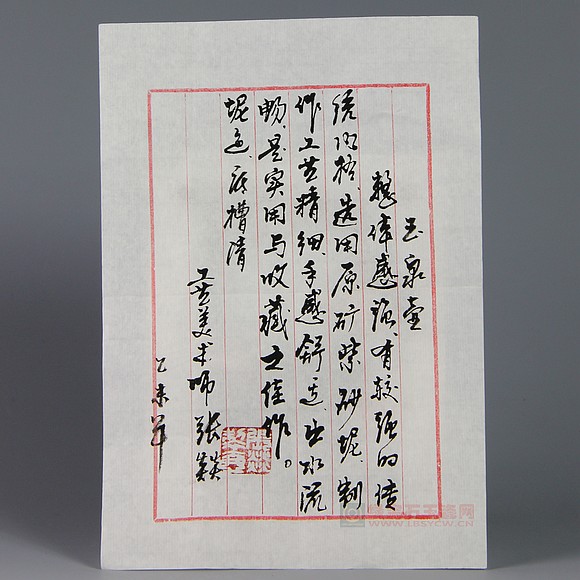 玉泉壶
整体感强、有较强的传
统风格、选用原矿紫砂坭、制
作工艺精细、手感舒适、出水流
畅、是实用与收藏之佳作。
坭色、底槽清
工艺美术师 张燚
乙未年
WWW.LBSYCW.CN